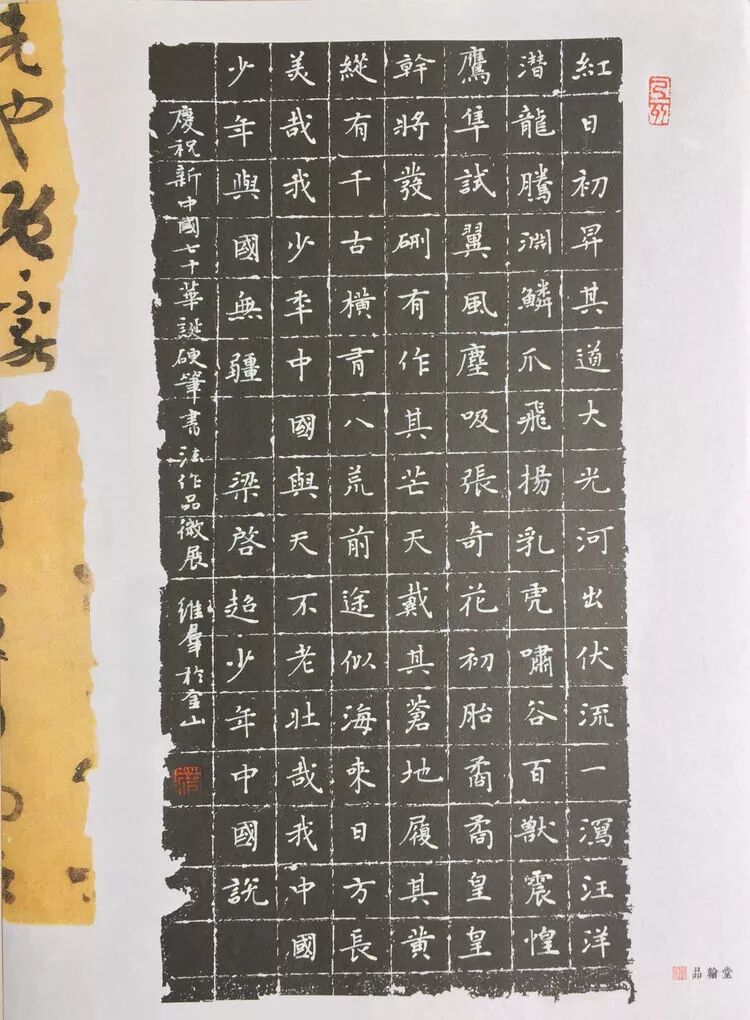 紅日初昇其道大光河出伏流一瀉汪洋
潜龍騰淵鱗爪飛揚乳虎嘯谷百獸震惶
鷹隼試翼風塵吸張奇花初胎矞矞皇皇
幹將發硎有作其芒天戴其蒼地履其黄
縱有千古橫有八荒前途似海來日方長
美哉我少秊中國與天不老壯哉我中國
少年與國無疆 梁啓超少年中國説
慶祝新中國七十華誕硬筆書法作品微展 維羣於金山
品翰堂